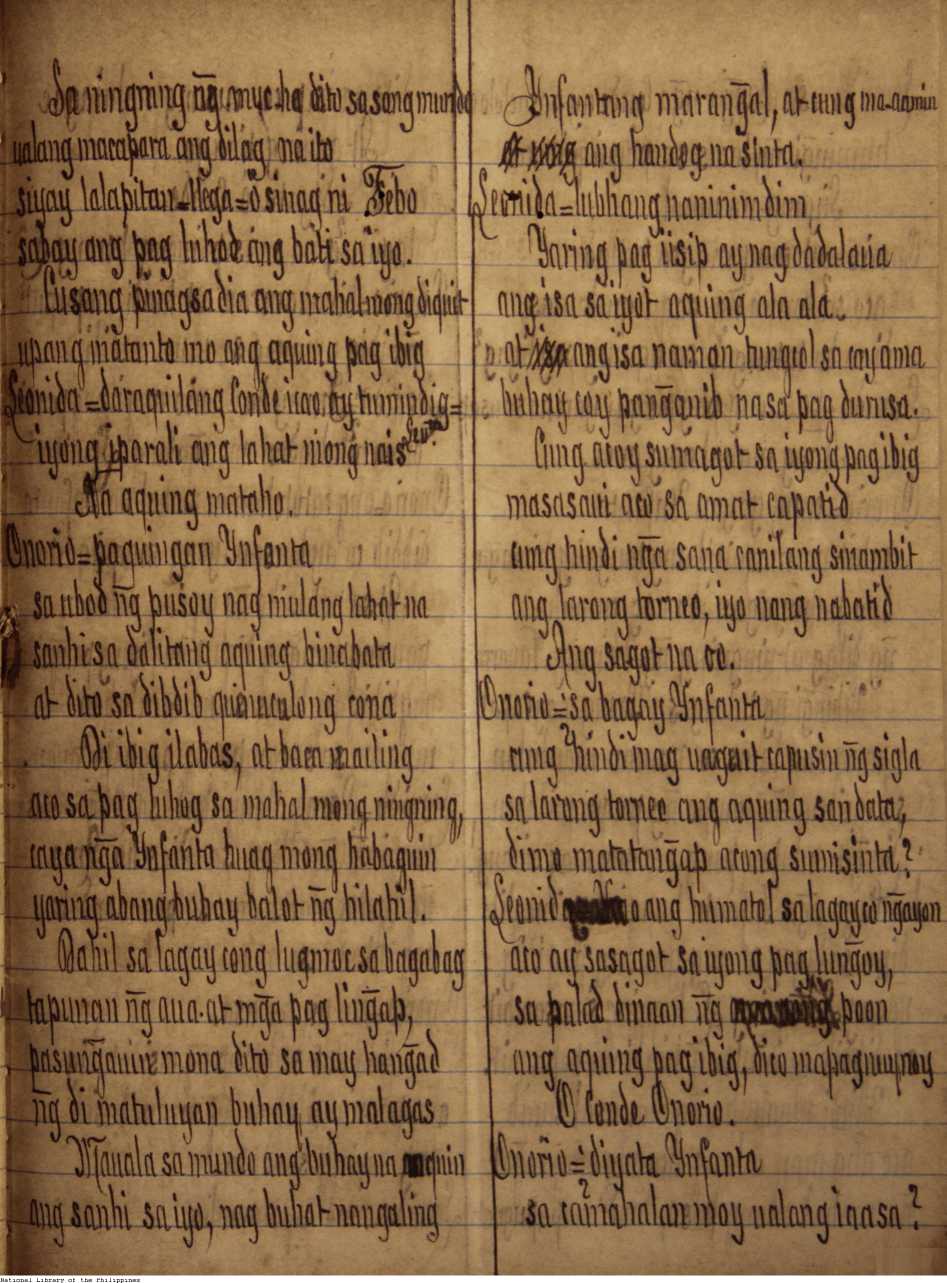 Sa ningning n̄g muc-ha dito sa sang mundo
ualang macapara ang dilag na ito
siyay lalapitan Nega = ó sinag ni Febo
sabay ang pag luhod ang bati sa iyo.
Cusang pinagsadia ang mahal mong diquit
upang matanto mo ang aquing pag ibig
Leonida = daraquilang Conde icao ay tumindig =
iyong iparali ang lahat mong nais
Na aquing mataho.
Onorio = paquingan Ynfanta
sa ubod n̄g pusoy nag mulang lahat na
sanhi sa dalitang aquing binabata
at dito sa dibdib quinuculong cona
Di ibig ilabas, at baca mailing
aco sa pag luhog sa mahal mong ningning,
caya n̄ga Ynfanta huag mong habaguin
yaring abang buhay balot n̄g hilahil.
Dahil sa lagay cong lugmoc sa bagabag
tapunan n̄g aua at mḡa pag lin̄gap,
pasun̄gauin mona dito sa may han̄gad
n̄g di matuluyan buhay ay malagas
Mauala sa mundo ang buhay na aquin
ang sanhi sa iyo, nag buhat nangaling
Ynfantang maran̄gal, at cung ma-aamin
ang handog na sinta.
Leonida = lubhang naninimdim
Yaring pag iisip ay nag dadalaua
ang isa sa iyot aquing ala ala
at ang isa naman tungcol sa cay ama
buhay coy pan̄ganib na sa pag durusa.
Cung acoy sumagot sa iyong pag ibig
masasaui aco sa amat capatid
cung hindi n̄ga sana canilang sinambit
ang larong torneo, iyo nang nabatid
Ang sagot na co.
Onorio = sa bagay Ynfanta
cung hindi mag uaguit capusin n̄g sigla
sa larong torneo ang aquing sandata,
dimo matatan̄gap acong sumisinta?
Leonida o ang humatol sa lagay co n̄gayon
aco ay sasagot sa iyong pag lun̄goy,
sa palad dinaan n̄g poon
ang aquing pag ibig, dico mapagnuynoy
O Conde Onorio.
Onorio = diyata Ynfanta
sa camahalan moy ualang iaasa?
National Library of the Philippines